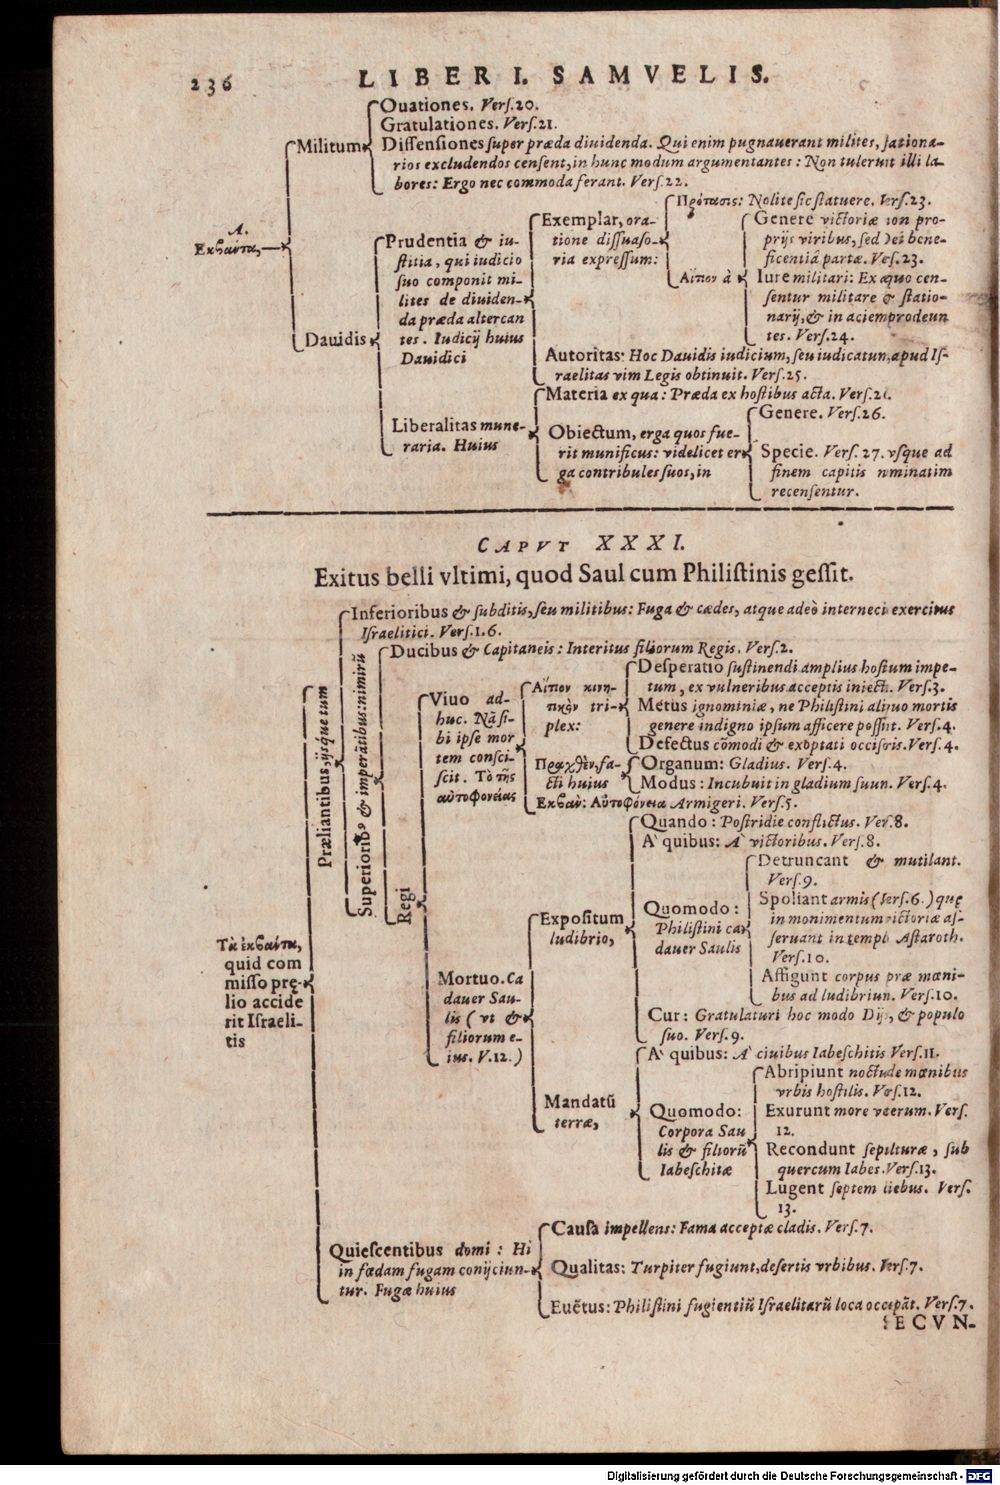 236
LIBER I. SAMVELIS.
Ouationes. Verſ.20.
Gratulationes. Verſ.21.
Militum
Diſſenſiones ſuper præda diuidenda. Qui enim pugnauerant milites, ſationa-
rios excludendos cenſent, in hunc modum argumentantes: Non tulerunt illi la-
bores: Ergo nec commoda ferant. Verſ.22.
A.
Ἐκβαίντα,
Dauidis
Prudentia & iu-
ſtitia, qui iudicio
ſuo componit mi-
lites de diuiden-
da præda altercan
tes. Iudicij huius
Dauidici
Exemplar, ora-
tione diſſuaſo-
ria expreſſum:
Πρότασις: Nolite ſic ſtatuere. Verſ.23.
Αἴτιον à
Genere victoriæ non pro-
prijs viribus, ſed Dei bene-
ficentiâ partæ. Verſ.23.
Iure militari: Ex æquo cen-
ſentur militare & ſtatio-
narij, & in aciem prodeun
tes. Verſ.24.
Autoritas: Hoc Dauidis iudicium, ſeu iudicatum, apud Iſ-
raelitas vim Legis obtinuit. Verſ.25.
Liberalitas mune-
raria. Huius
Materia ex qua: Præda ex hoſtibus acta. Verſ.26.
Obiectum, erga quos fue-
rit munificus: videlicet er
ga contribules ſuos, in
Genere. Verſ.26.
Specie. Verſ. 27. vſque ad
finem capitis nominatim
recenſentur.
CAPVT XXXI.
Exitus belli vltimi, quod Saul cum Philiſtinis geſſit.
Τὰ ἐκβαίντα,
quid com
miſſo prę-
lio accide
rit Iſraeli-
tis
Præliantibus, ijſque tum
Inferioribus & ſubditis, ſeu militibus: Fuga & cædes, atque adeò interneci exercitus
Iſraelitici. Verſ.1.6.
Superiorib9 & imperātibus: nimirū
Ducibus & Capitaneis: Interitus filiorum Regis. Verſ.2.
Regi
Viuo ad-
huc. Nā ſi-
bi ipſe mor
tem conſci-
ſcit. Τὸ τῆς
αὐτοφονείας
Αἴτιον κινη-
τικὸν tri-
plex:
Deſperatio ſuſtinendi amplius hoſtium impe-
tum, ex vulneribus acceptis iniecta. Verſ.3.
Metus ignominiæ, ne Philiſtini aliquo mortis
genere indigno ipſum afficere poſſint. Verſ.4.
Defectus cōmodi & exoptati occiſoris. Verſ.4.
Πραχθὲν, fa-
cti huius
Organum: Gladius. Verſ.4.
Modus: Incubuit in gladium ſuum. Verſ.4.
Ἐκβαν: Αὐτοφόνεια Armigeri. Verſ.5.
Mortuo. Ca
dauer Sau-
lis (vt &
filiorum e-
ius. V.12.)
Expoſitum
ludibrio,
Quando: Poſtridie conflictus. Verſ.8.
A` quibus: A` victoribus. Verſ.8.
Quomodo:
Philiſtini ca
dauer Saulis
Detruncant & mutilant.
Verſ.9.
Spoliant armis (Verſ.6.) quę
in monimentum victoriæ aſ-
ſeruant in templo Aſtaroth.
Verſ.10.
Affigunt corpus præ mœni-
bus ad ludibrium. Verſ.10.
Cur: Gratulaturi hoc modo Dijs, & populo
ſuo. Verſ.9.
Mandatū
terræ,
A` quibus: A` ciuibus Iabeſchitis Verſ.11.
Quomodo:
Corpora Sau
lis & filiorū
Iabeſchitæ
Abripiunt noctu de mœnibus
vrbis hoſtilis. Verſ.12.
Exurunt more veterum. Verſ.
12.
Recondunt ſepulturæ, ſub
quercum Iabes. Verſ.13.
Lugent ſeptem diebus. Verſ.
13.
Quieſcentibus domi: Hi
in fœdam fugam conijciun-
tur. Fugæ huius
Cauſa impellens: Fama acceptæ cladis. Verſ.7.
Qualitas: Turpiter fugiunt, deſertis vrbibus. Verſ.7.
Euētus: Philiſtini fugientiū Iſraelitarū loca occupāt. Verſ.7.
SECVN-
Digitalisierung gefördert durch die Deutsche Forschungsgemeinschaft - DFG